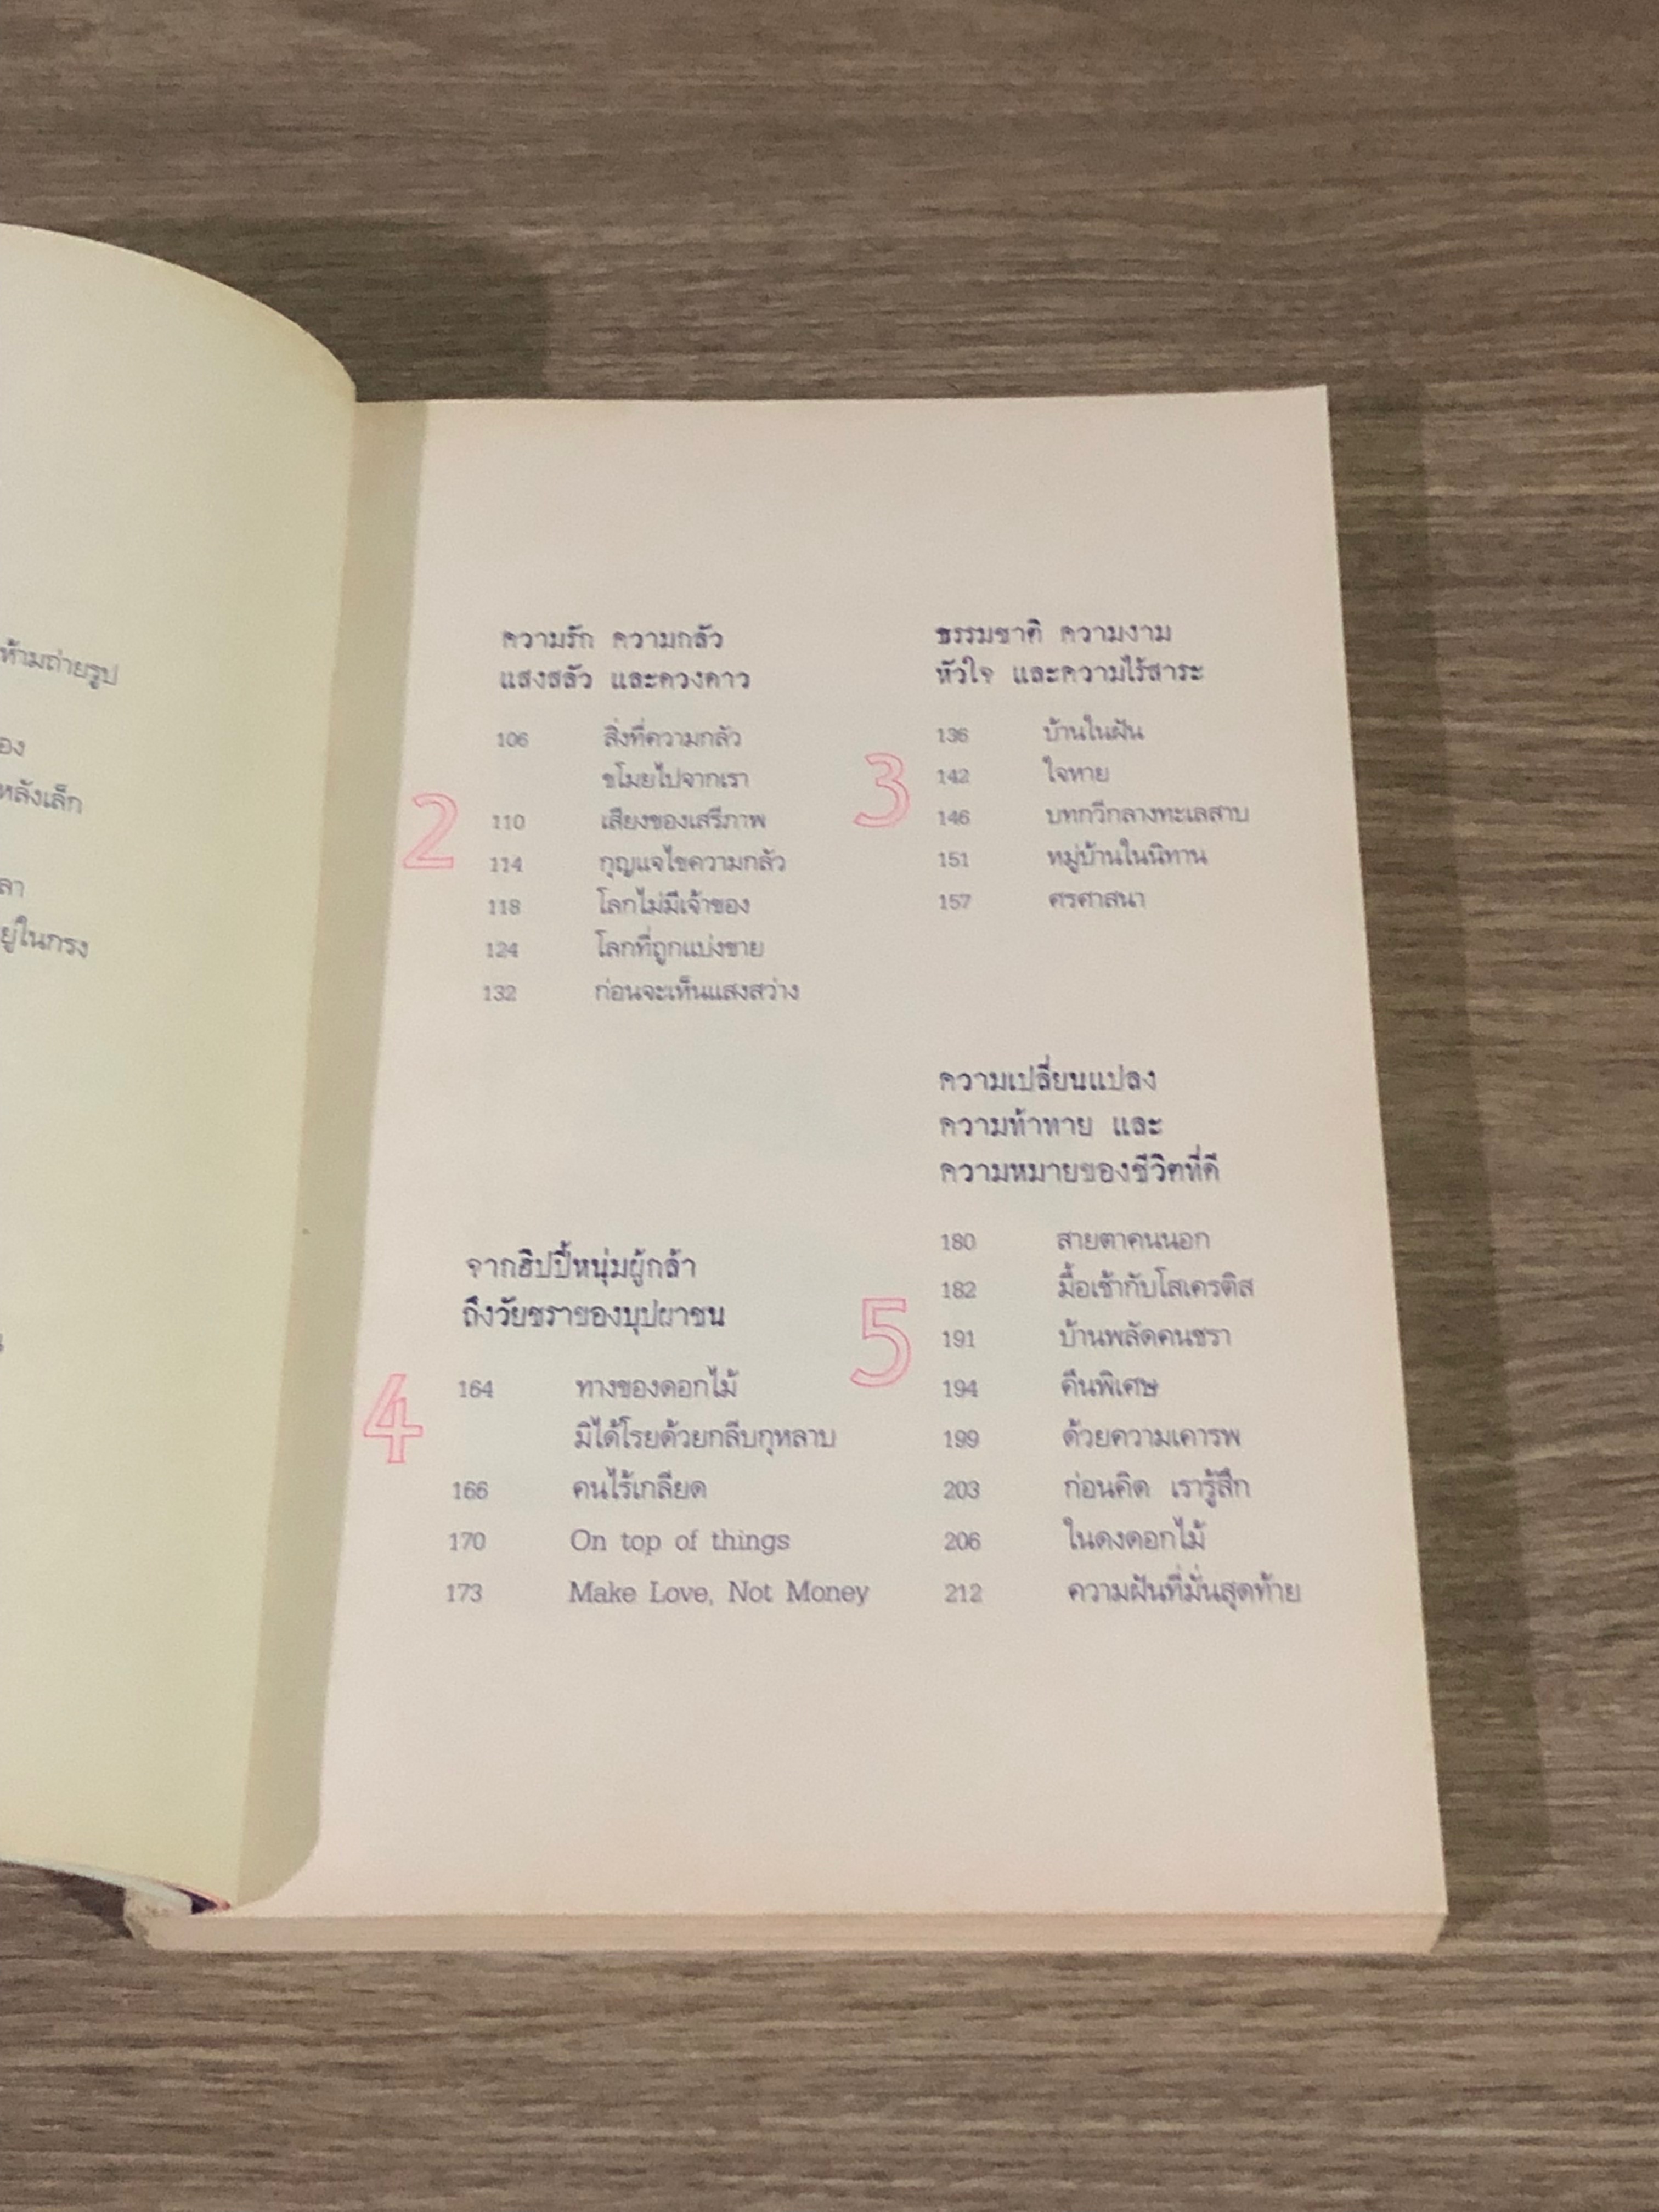 ห้ามถ่ายรูป
หลังเล็ก
ความรัก ความกลัว
แสงสลัว และดวงดาว
2
106 สิ่งที่ความกลัว
ขโมยไปจากเรา
110 เสียงของเสรีภาพ
114 กุญแจไขความกลัว
118 โลกไม่มีเจ้าของ
124 โลกที่ถูกแบ่งขาย
132 ก่อนจะเห็นแสงสว่าง
ธรรมชาติ ความงาม
หัวใจ และความไร้สาระ
3
136 บ้านในฝัน
142 ใจหาย
146 บทกวีกลางทะเลสาบ
151 หมู่บ้านในนิทาน
157 ศรศาสนา
จากฮิปปี้หนุ่มผู้กล้า
ถึงวัยชราของบุปผาชน
4
164 ทางของดอกไม้
มิได้โรยด้วยกลีบกุหลาบ
166 คนไร้เกลียด
170 On top of things
173 Make Love, Not Money
ความเปลี่ยนแปลง
ความท้าทาย และ
ความหมายของชีวิตที่ดี
5
180 สายตาคนนอก
182 มื้อเช้ากับโสเครติส
191 บ้านพลัดคนชรา
194 คืนพิเศษ
199 ด้วยความเคารพ
203 ก่อนคิด เรารู้สึก
206 ในดงดอกไม้
212 ความฝันที่มั่นสุดท้าย